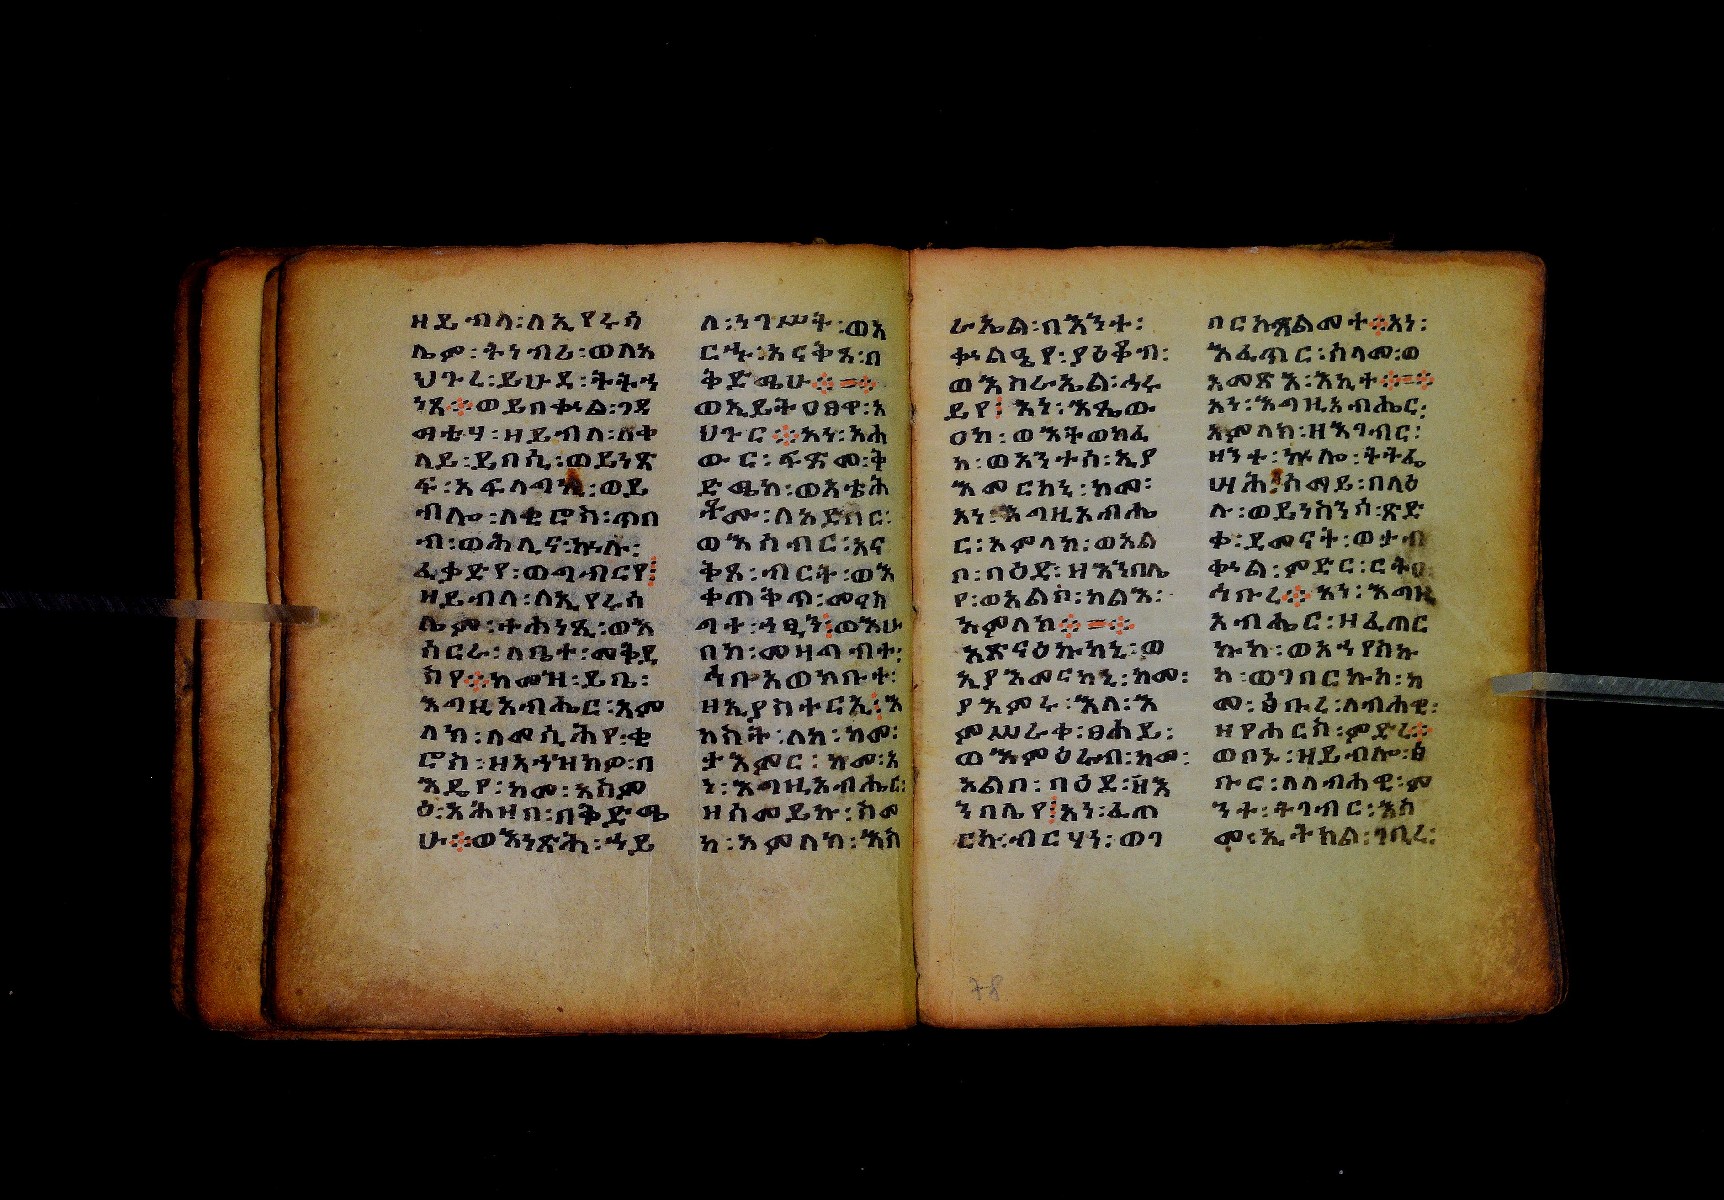 ዘይብላ፡ለኢየሩሳ
ሌም፡ትነብሪ፡ወለአ
ህጉረ፡ይሁዳ፡ትትሐ
ነጻ፨ወይበቍል፡ገዳ
ማቲሃ፡ዘይብለ፡ለቀ
ላይ፡ይበሲ፡ወይነጽ
ፍ፡አፍላጊ፡ወይ
ብሎ፡ለቂሮስ፡ጥበ
ብ፡ወሕሊና፡ኵሉ፡
ፈቃድየ፡ወግብርየ፤
ዘይብላ፡ለኢየሩሳ
ሌም፡ተሐነጺ፡ወእ
ሰርራ፡ለቤተ፡መቅደ
ስየ፨ከመዝ፡ይቤ፡
እግዚአብሔር፡አም
ላክ፡ለመሲሕየ፡ቂ
ሮስ፡ዘአኀዝክዎ፡በ
እዴየ፡ከመ፡አስም
ዕ፡አሕዛበ፡በቅድሜ
ሁ፨ወእነጽሕ፡ኀይ
ለ፡ነገሥት፡ወአ
ርኁ፡አናቅጸ፡በ
ቅድሜሁ፨=፨
ወኢይትዐፀዋ፡አ
ህጉር፨አነ፡አሐ
ውር፡ፍጽመ፡ቅ
ድሜከ፡ወአቴሕ
ቶሙ፡ለአድበር፡
ወእሰብር፡አና
ቅጸ፡ብርት፡ወእ
ቀጠቅጥ፡መናስ
ግተ፡ኀፂን፤ወእሁ
በከ፡መዛግብተ፡
ኅቡአ፡ወኅቡተ፡
ዘኢያስተርኢ፤እ
ከስት፡ለከ፡ከመ፡
ታእምር፡ከመ፡አ
ነ፡እግዚአብሔር፡
ዘስመይኩ፡ስመ
ከ፡አምላከ፡እስ
ራኤል፡በእንተ፡
ቍልዔየ፡ያዕቆብ፡
ወእስራኤል፡ኅሩ
ይየ፤አነ፡እጼው
ዐከ፡ወእትወከፈ
ከ፡ወአንተሰ፡ኢያ
እመርከኒ፡ከመ፡
አነ፡እግዚአብሔ
ር፡አምላክ፡ወአል
ቦ፡በዕድ፡ዘእንበሌ
የ፡ወአልቦ፡ካልእ፡
አምላክ፨=፨
አጽናዕኩከኒ፡ወ
ኢያእመናከኒ፡ከመ፡
ያእምሩ፡እለ፡እ
ምሥራቀ፡ፀሐይ፡
ወእምዕራብ፡ከመ፡
አልቦ፡በዕደ፡ዘእ
ንበሌየ፤አነ፡ፈጠ
ርኩ፡ብርሃነ፡ወገ
በርኩ፡ጽልመተ፨አነ፡
እፈጥር፡ሰላመ፡ወ
አመጽእ፡እኪተ፨=፨
አነ፡እግዚአብሔር፡
አምላክ፡ዘእገብር፡
ዘንተ፡ኵሎ፡ትትፌ
ሣሕ፡ሰማይ፡በላዕ
ሉ፡ወይንስንሳ፡ጽድ
ቀ፡ደመናት፡ወታብ
ቍል፡ምድር፡ርትዐ፡
ኅቡረ፨አነ፡እግዚ
አብሔር፡ዘፈጠር
ኩከ፡ወአኀየስኩ
ከ፡ወገበርኩከ፡ከ
መ፡ፅቡረ፡ለብሐዊ፡
ዘየሐርስ፡ምድረ፨
ወቦኑ፡ዘይብሎ፡ፅ
ቡር፡ለለብሐዊ፡ም
ንተ፡ትገብር፡እስ
መ፡ኢትክል፡ገቢረ፡
78